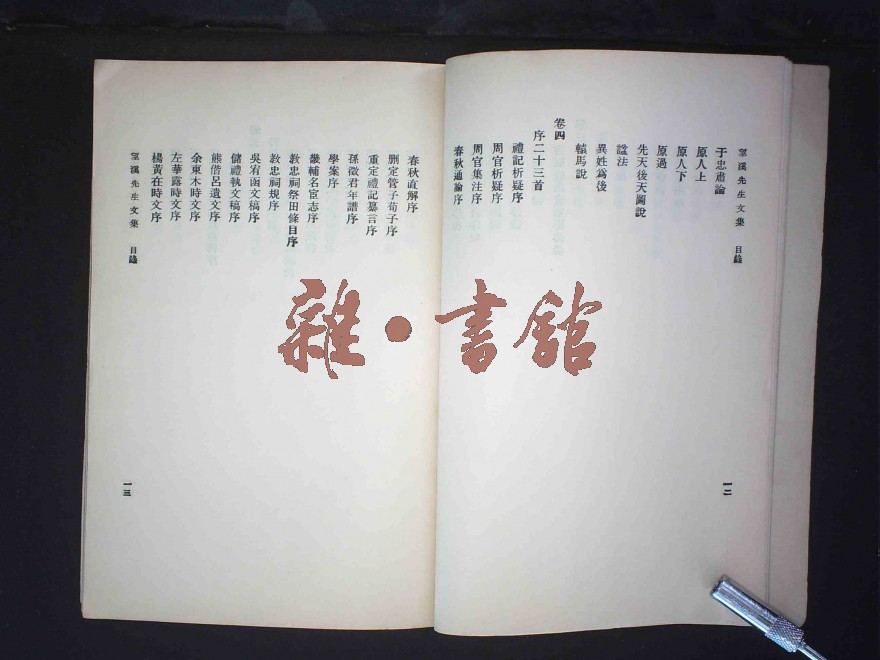 望溪先生文集 目錄
于忠肅論
原人上
原人下
原過
先天後天圖說
諡法
異姓爲後
轅馬說
卷四
序二十三首
禮記析疑序
周官析疑序
周官集注序
春秋通論序
一二
春秋直解序
刪定管子荀子序
重定禮記纂言序
孫徵君年譜序
學案序
畿輔名宦志序
敦忠祠祭田條目序
敦忠祠規序
吳宥函文稿序
儲禮執文稿序
熊偕呂遺文序
余東木時文序
左華露時文序
楊黃在時文序
望溪先生文集 目錄
一三
雜·書館